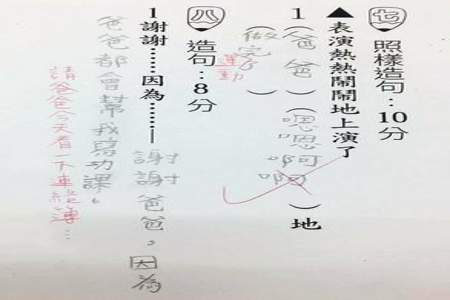 七 照樣造句：10分
▲表演熱熱鬧鬧地上演了
1（爸爸）（嗯嗯啊啊）地
（做完了）
運動
八 造句：8分
1謝謝……因為……
謝謝爸爸。因為
爸爸都會幫我寫功課。
請爸爸今天看一下連絡簿…